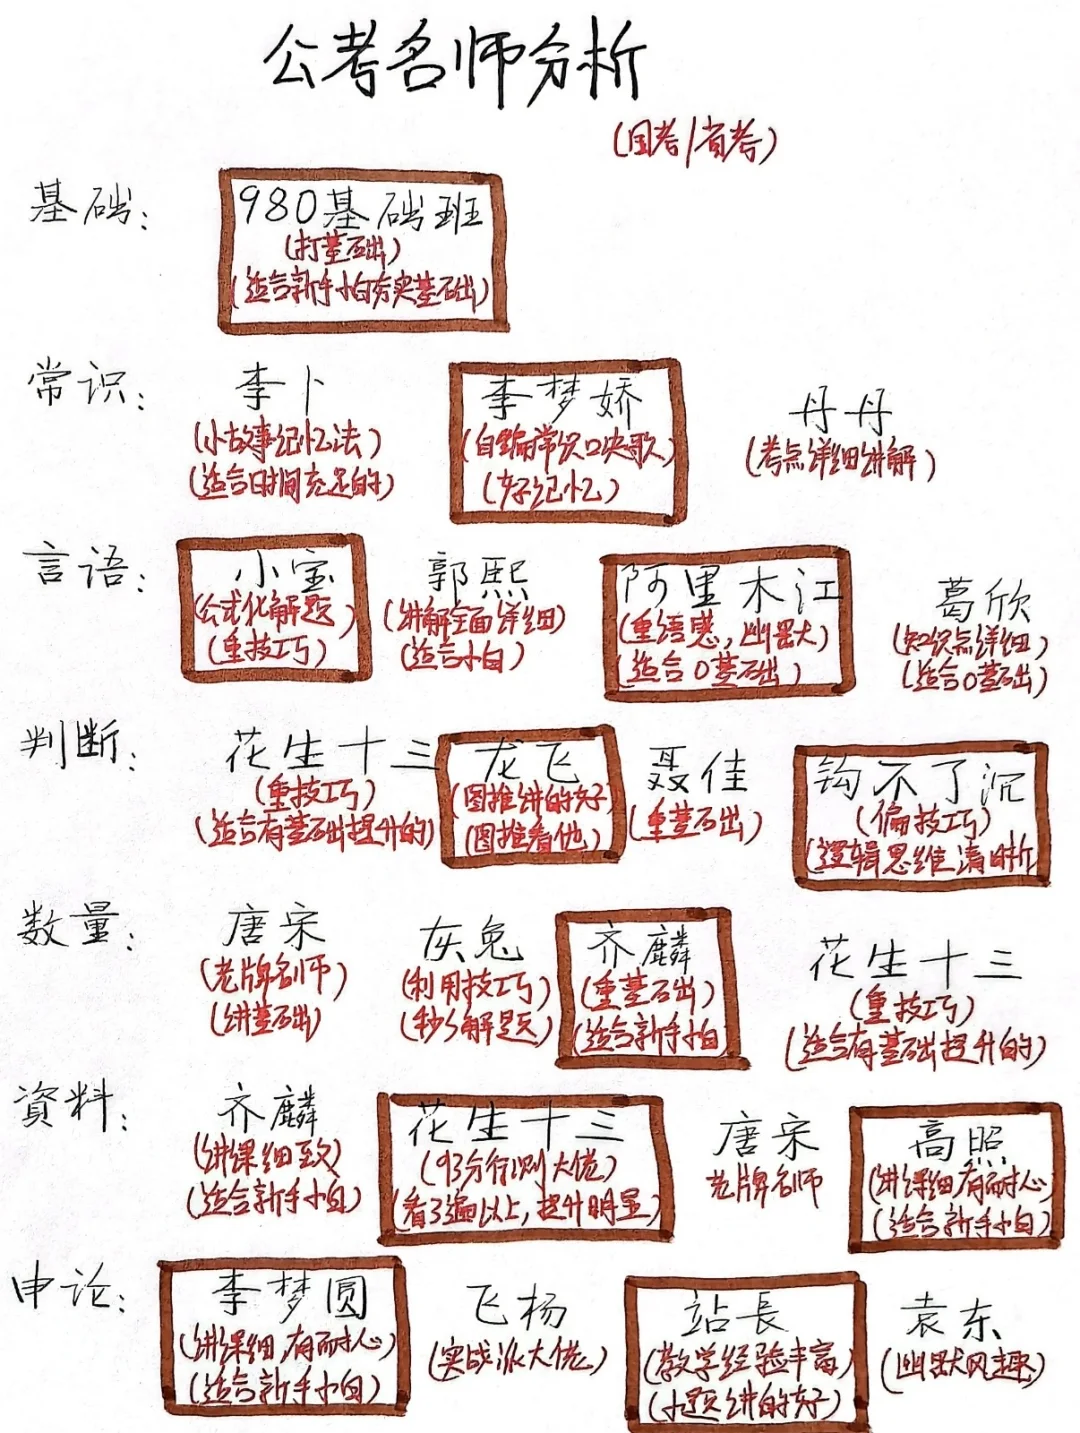 公考名师分析
(国考/省考)
基础:
980基础班
(打基础)
(适合新手小白夯实基础)
常识:
李卜
(小故事记忆法)
(适合时间充足的)
李梦娇
(自编常识口决歌)
(好记忆)
丹丹
(考点详细讲解)
言语:
小宝
(公式化解题)
(重技巧)
郭熙
(讲解全面详细)
(适合小白)
阿里木江
(重语感,幽默大)
(适合0基础)
葛欣
(知识点详细)
(适合0基础)
判断:
花生十三
(重技巧)
(适合有基础提升的)
龙飞
(图推讲的好)
(图推看他)
聂佳
(重基础)
钩不了沉
(偏技巧)
(逻辑思维清晰)
数量:
唐宋
(老牌名师)
(讲基础)
灰兔
(利用技巧)
(秒解题)
齐麟
(重基础)
(适合新手小白
花生十三
(重技巧)
(适合有基础提升的)
資料:
齐麟
(讲课细致)
(适合新手小白)
花生十三
(93分行测大佬)
(看3遍以上,提升明显)
唐宋
老牌名师
高照
(讲课细,有耐心)
(适合新手小白)
申论:
李梦圆
(讲课细,有耐心)
(适合新手小白)
飞杨
(实战派大佬)
站長
(教学经验丰富)
(小题讲的好)
袁东
(幽默风趣)